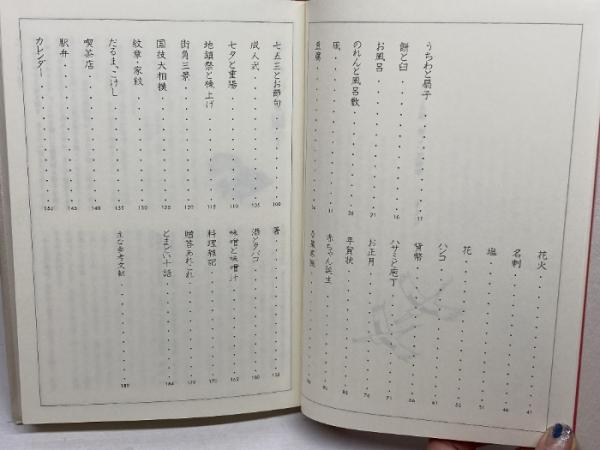 うちわと扇子 17
餅と臼 16
お風呂 21
のれんと風呂敷 28
凧
豆腐
花火 41
名刺 46
塩 51
花
ハンコ 61
貨幣 66
ハサミと庖丁 71
お正月 76
年賀状
赤ちゃん誕生
七五三とお節句 100
成人式 105
七夕と重陽 110
地鎮祭と棟上げ 115
街角三景 120
国技大相撲 125
紋章・家紋 130
だるま、こけし 135
喫茶店 140
駅弁 145
カレンダー 150
箸 155
酒とタバコ 160
味噌と味噌汁 165
料理雑記 170
贈答あれこれ
とまどい十話 184
主な参考文献 189